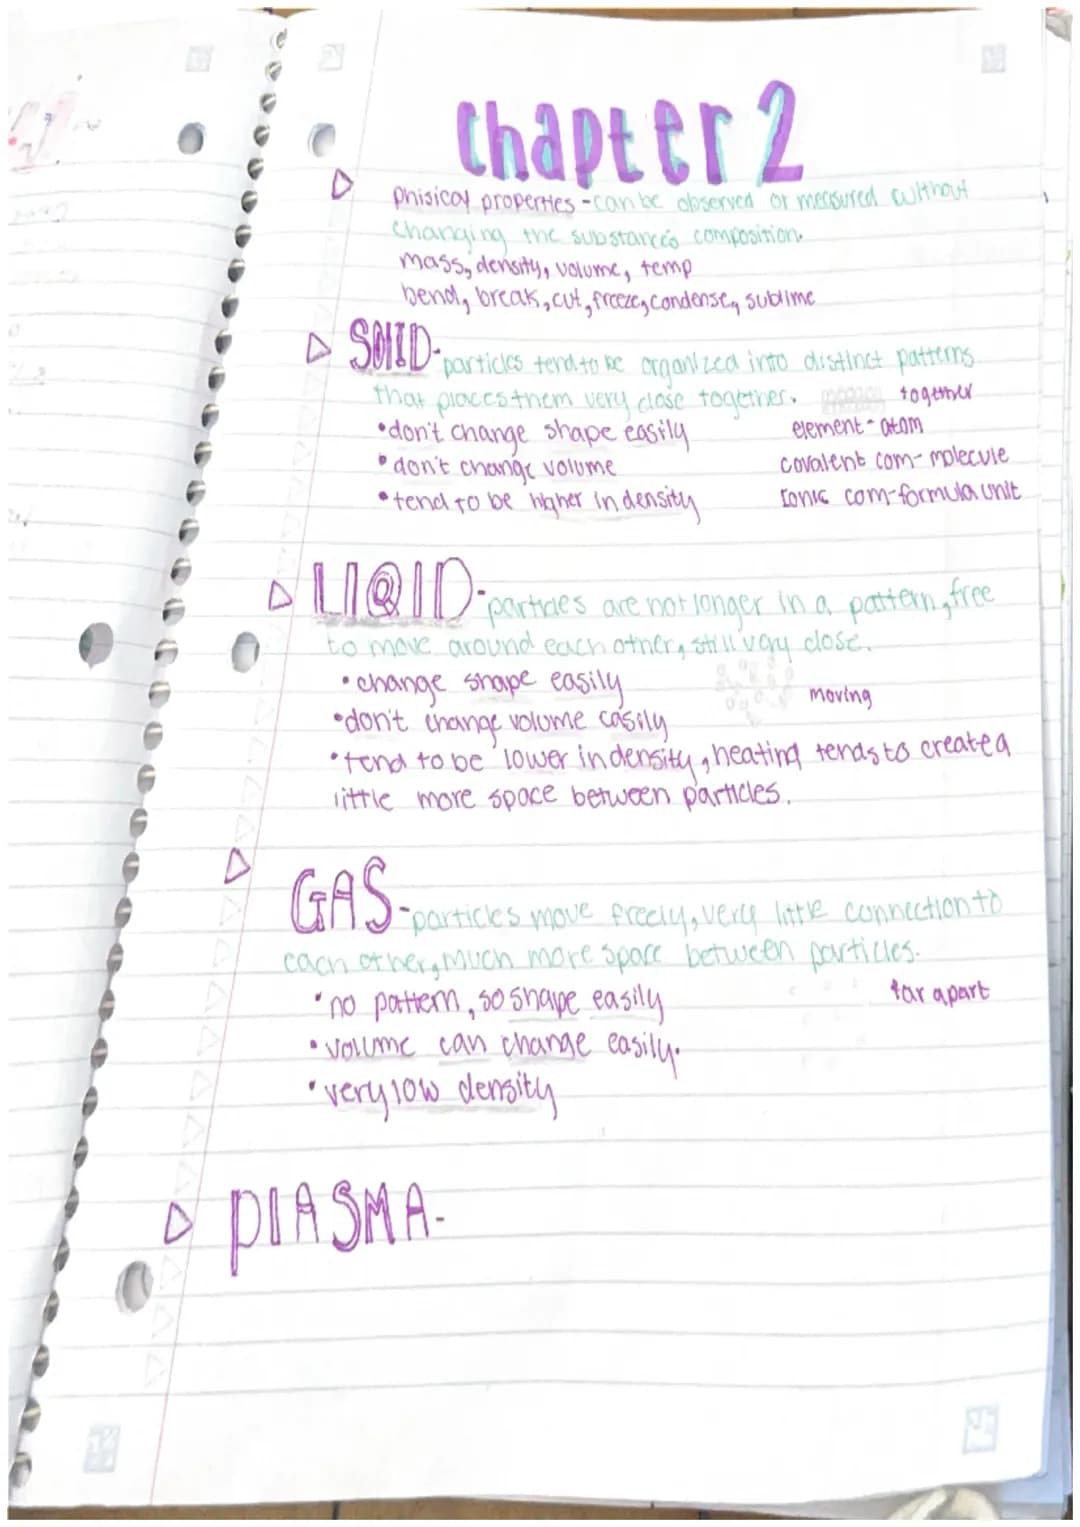 Chapter 2
phisical properties - can be observed or measured without
changing the substance's composition.
mass, density, volume, temp
bend, break, cut, freeze, condense, sublime
SOlID - particles tend to be organized into distinct patterns
that places them very close together. together
•don't change shape easily element - atom
•don't change volume covalent com - molecule
•tend to be higher in density Ionic com - formula unit
LIQID - particles are not longer in a pattern, free
to move around each other, still very close.
•change shape easily
moving
•don't change volume easily
•tend to be lower in density, heating tends to create a
little more space between particles.
GAS - particles move freely, very little connection to
each other, much more space between particles.
•no pattern, so shape easily far apart
•volume can change easily.
•very low density
PlASMA -